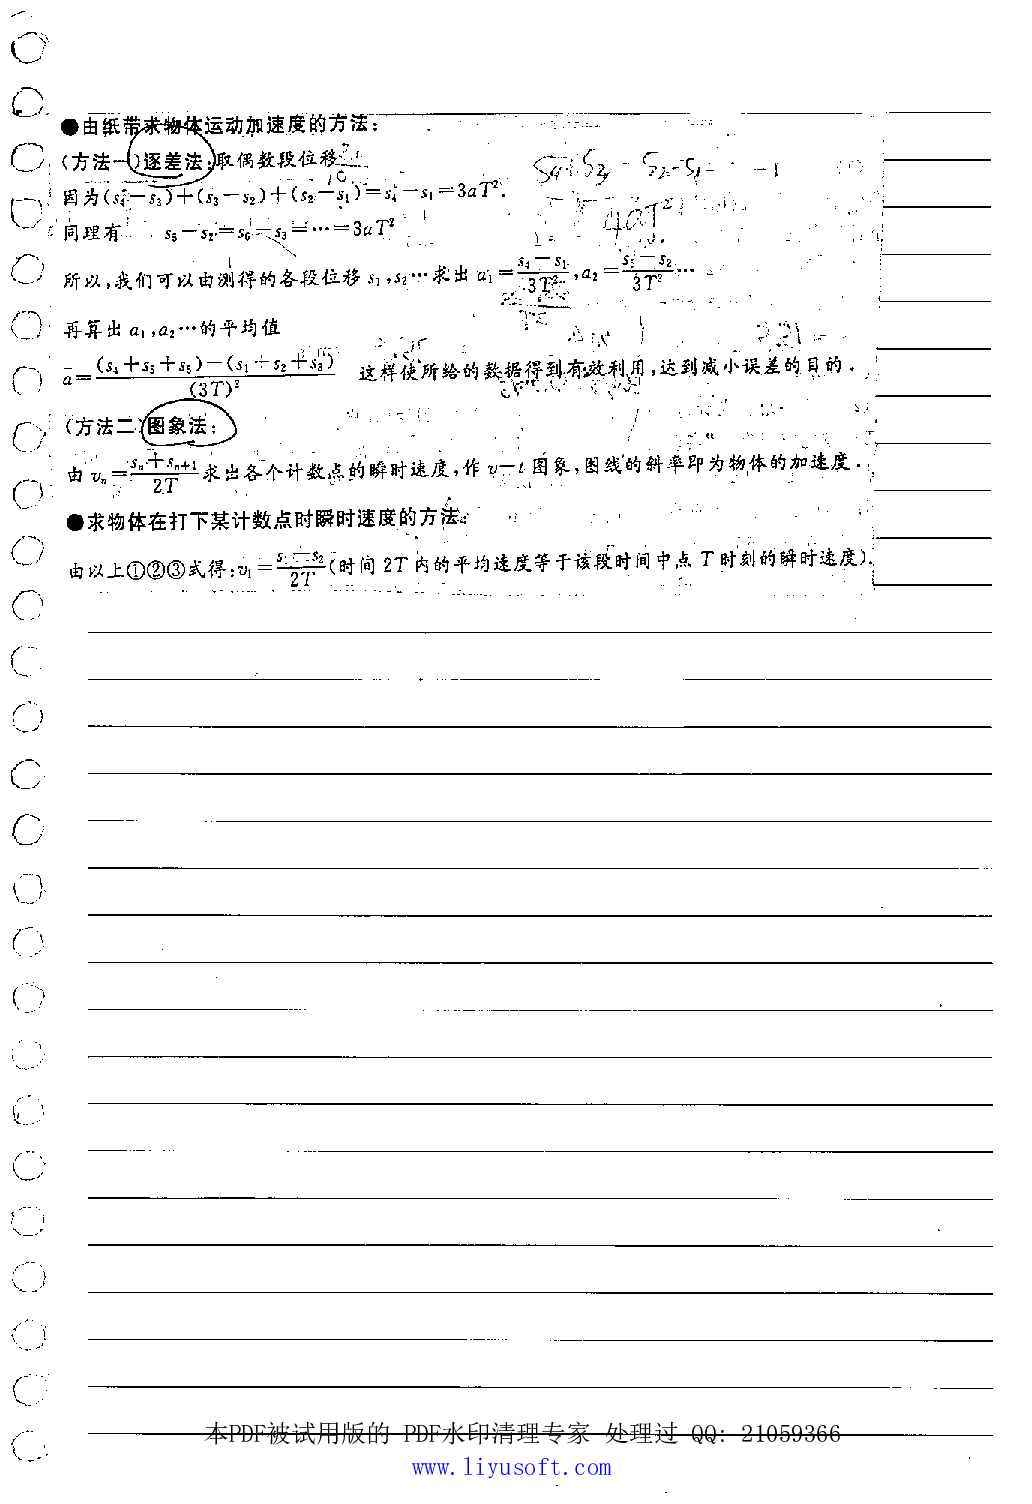 ●由纸带求物体运动加速度的方法:
(方法一)逐差法:取偶数段位移
因为(s₄-s₃)+(s₃-s₂)+(s₂-s₁)=s₄-s₁=3aT².
同理有 s₅-s₂=s₆-s₃=…=3aT²
所以,我们可以由测得的各段位移 s₁,s₂…求出 a₁=(s₄-s₁)/3T²,a₂=(s₅-s₂)/3T²…
再算出 a₁,a₂…的平均值
a̅=((s₄+s₅+s₆)-(s₁+s₂+s₃))/(3T)² 这样使所给的数据得到有效利用,达到减小误差的目的.
(方法二)图象法:
由 vₙ=(sₙ+sₙ₊₁)/2T 求出各个计数点的瞬时速度,作 v-t 图象,图线的斜率即为物体的加速度.
●求物体在打下某计数点时瞬时速度的方法:
由以上①②③式得:v₁=(s₁-s₂)/2T(时间 2T 内的平均速度等于该段时间中点 T 时刻的瞬时速度).
4aT²
本PDF被试用版的 PDF水印清理专家 处理过 QQ: 21059366
www.liyusoft.com